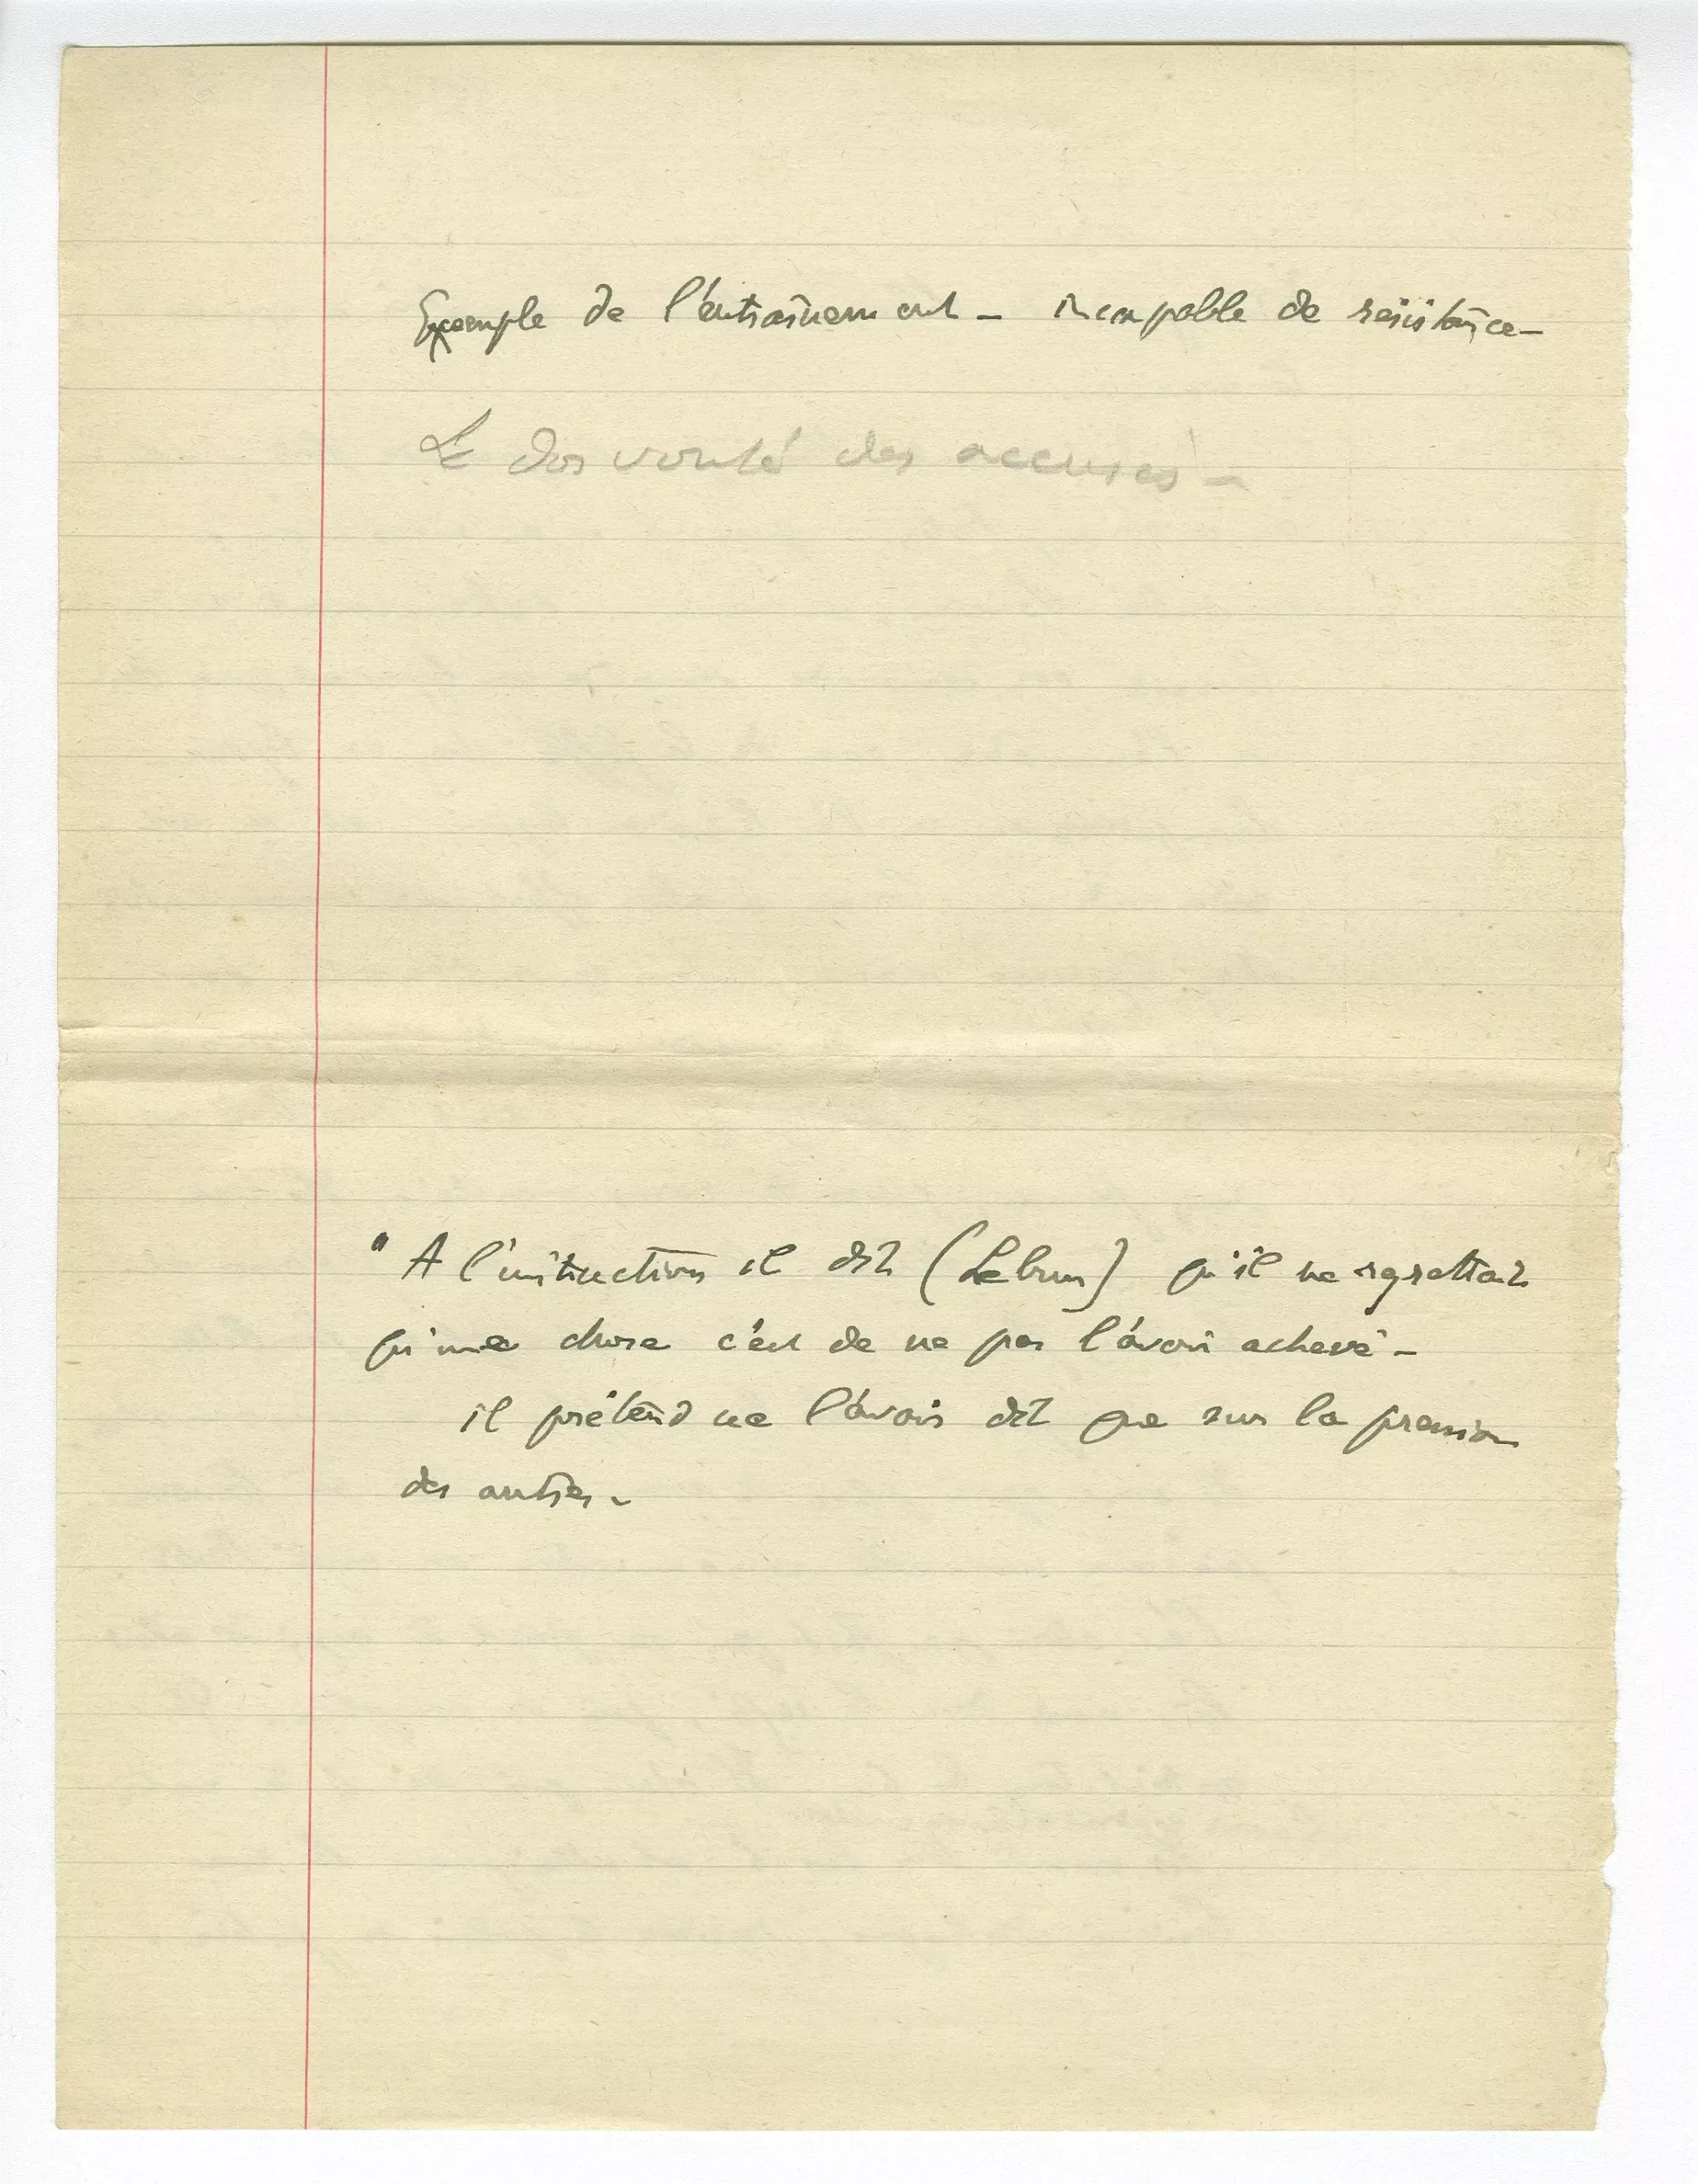 Exemple de l'entraînement – incapable de résistance –
Le dos vouté des accusés –
" A l'instruction il dit (Lebrun) qu'il ne regrettait
qu'une chose c'est de ne pas l'avoir achevé –
il prétend ne l'avoir dit que sur la pression
des autres –